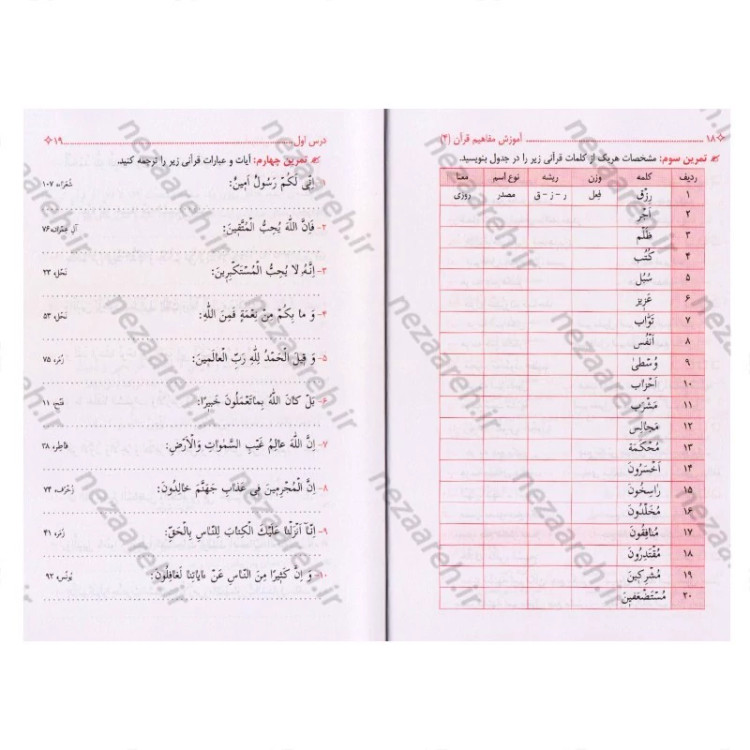 ۱۸ آموزش مفاهیم قرآن (۴)
تمرین سوم: مشخصات هریک از کلمات قرآنی زیر را در جدول بنویسید.
ردیف کلمه وزن ریشه نوع اسم معنا
۱ رِزْق فِعل ر - ز - ق مصدر روزی
۲ اَجْر
۳ ظُلْم
۴ کُتُب
۵ سُبُل
۶ عَزیز
۷ تَوّاب
۸ اَنْفُس
۹ وُسْطیٰ
۱۰ اَحْزاب
۱۱ مَشْرَب
۱۲ مَجالِس
۱۳ مُحْکَمَة
۱۴ اَخْسَرُونَ
۱۵ راسِخُونَ
۱۶ مُخَلَّدُونَ
۱۷ مُنافِقُونَ
۱۸ مُقْتَدِرُونَ
۱۹ مُشْرِکینَ
۲۰ مُسْتَضْعَفینَ
درس اول ۱۹
تمرین چهارم: آیات و عبارات قرآنی زیر را ترجمه کنید.
۱- اِنّی لَکُمْ رَسُولٌ اَمینٌ: شُعَراء، ۱۰۷
۲- فَاِنَّ اللهَ یُحِبُّ الْمُتَّقینَ: آل عِمران، ۷۶
۳- اِنَّهُ لا یُحِبُّ الْمُسْتَکْبِرینَ: نَحل، ۲۳
۴- وَ ما بِکُمْ مِنْ نِعْمَةٍ فَمِنَ اللهِ: نَحل، ۵۳
۵- وَ قیلَ الْحَمْدُ لِلّهِ رَبِّ الْعالَمینَ: زُمَر، ۷۵
۶- بَلْ کانَ اللهُ بِما تَعْمَلُونَ خَبیرًا: فَتح، ۱۱
۷- اِنَّ اللهَ عالِمُ غَیْبِ السَّمٰواتِ وَ الْاَرْضِ: فاطِر، ۳۸
۸- اِنَّ الْمُجْرِمینَ فی عَذابِ جَهَنَّمَ خالِدُونَ: زُخرُف، ۷۴
۹- اِنّا اَنْزَلْنا عَلَیْكَ الْکِتابَ لِلنّاسِ بِالْحَقِّ: زُمَر، ۴۱
۱۰- وَ اِنَّ کَثیرًا مِنَ النّاسِ عَنْ ءایاتِنا لَغافِلُونَ: یونُس، ۹۲
nezaareh.ir
nezaareh.ir
nezaareh.ir
nezaareh.ir
nezaareh.ir
nezaareh.ir
nezaareh.ir
nezaareh.ir
nezaareh.ir